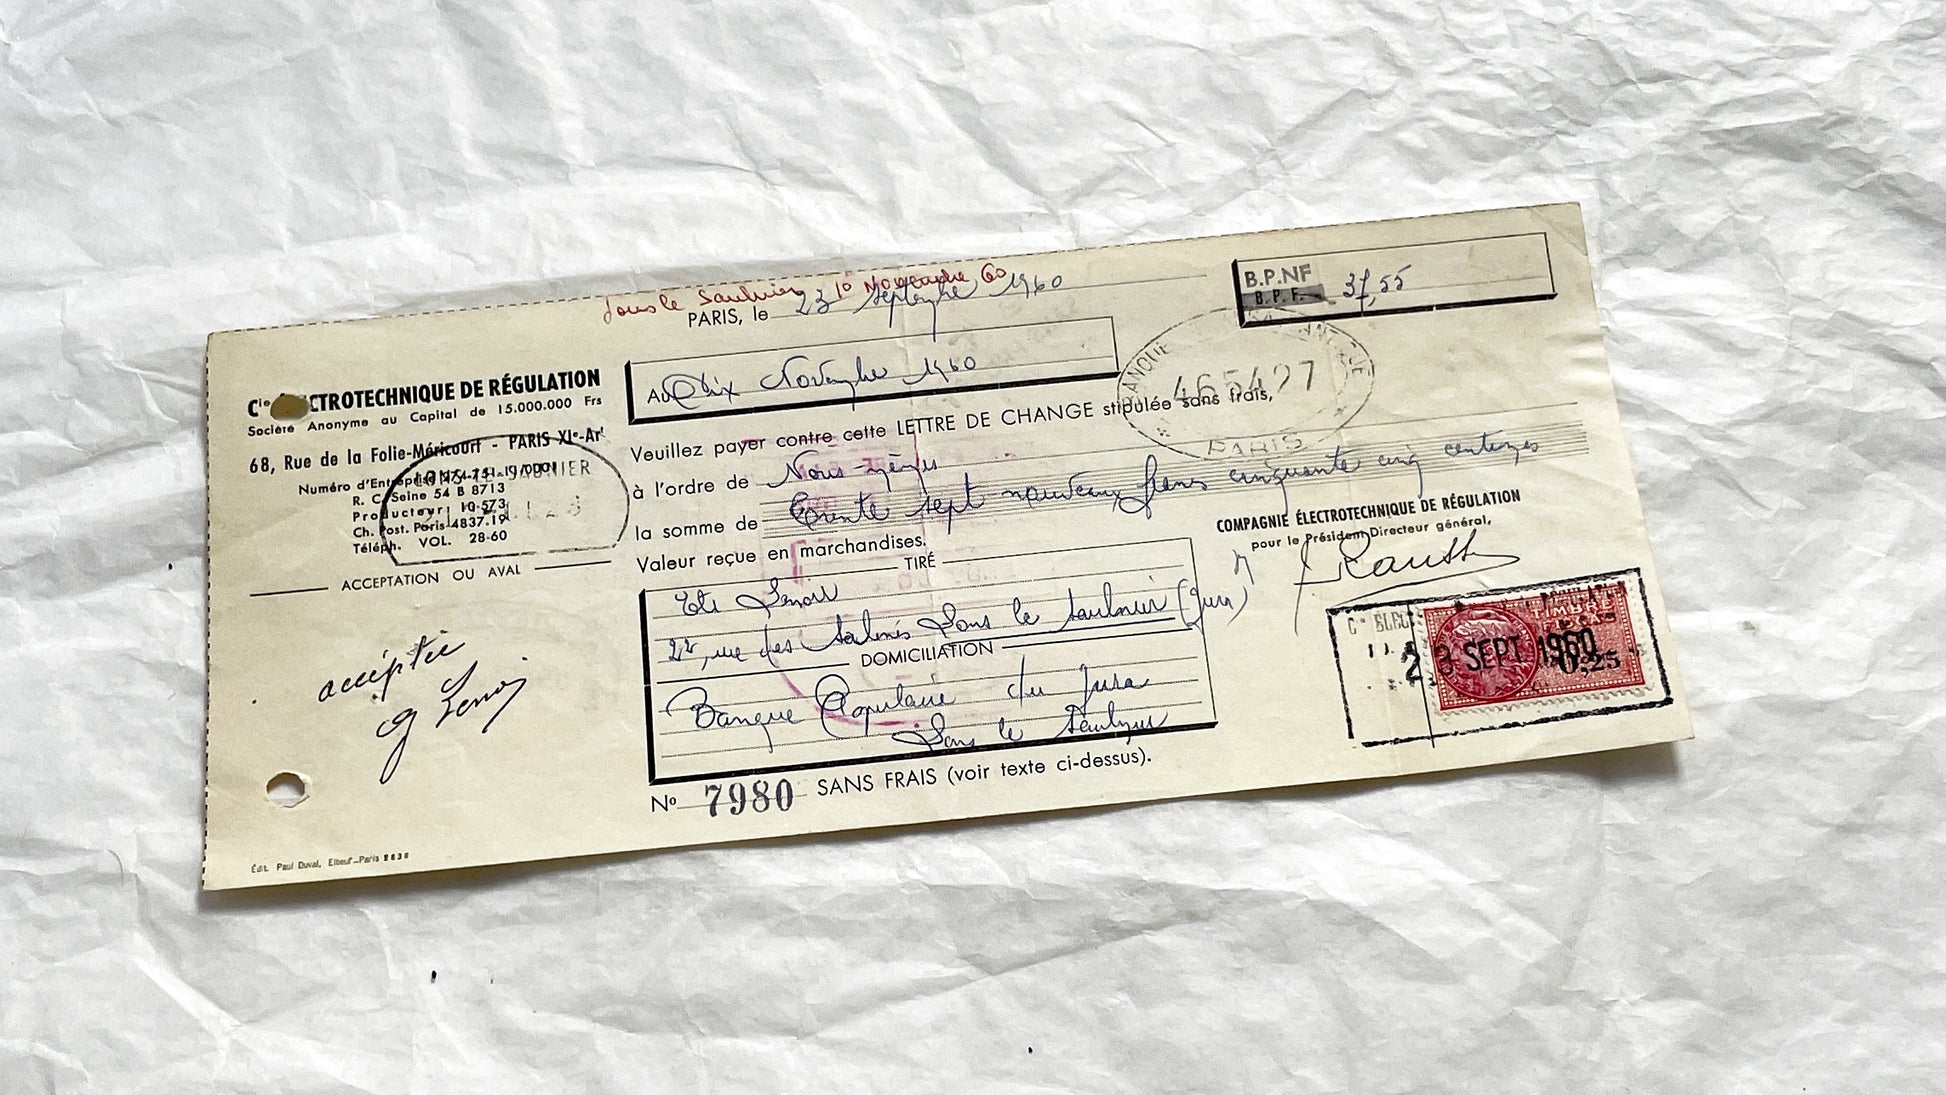 Lons le Saulnier 10 Novembre 60
PARIS, le 23 Septembre 1960
B.P.NF
B.P.F. 37,55
Cie ÉLECTROTECHNIQUE DE RÉGULATION
Société Anonyme au Capital de 15.000.000 Frs
68, Rue de la Folie-Méricourt - PARIS XIe-Art
Numéro d'Entreprise
R. C. Seine 54 B 8713
Producteur: 10-573
Ch. Post. Paris 4837.19
Téléph. VOL. 28-60
LONS-LE-SAUNIER
ACCEPTATION OU AVAL
acceptée
G Lenoir
Au Dix Novembre 1960
BANQUE
465427
PARIS
Veuillez payer contre cette LETTRE DE CHANGE stipulée sans frais,
à l'ordre de Nous-mêmes
la somme de trente sept nouveaux francs cinquante cinq centimes
Valeur reçue en marchandises.
TIRÉ
Ets Lenoir
22, rue des Salines Lons le Saulnier (Jura)
DOMICILIATION
Banque Populaire du Jura
Lons le Saulnier
COMPAGNIE ÉLECTROTECHNIQUE DE RÉGULATION
pour le Président Directeur général,
Cie ELEC
TIMBRE
23 SEPT 1960
0,25
No 7980 SANS FRAIS (voir texte ci-dessus).
Édit. Paul Duval, Elbeuf-Paris